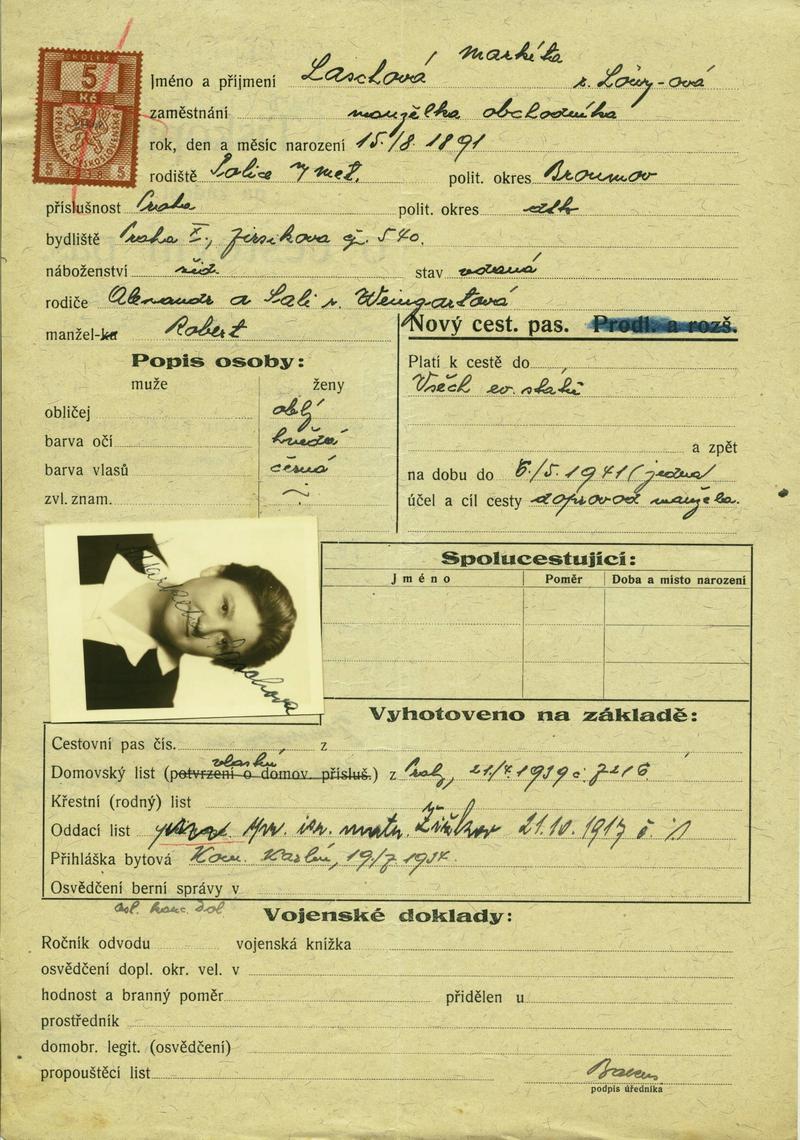 KOLEK
5
Kč
REPUBLIKA ČESKOSLOVENSKÁ
5 1938 5
Markéta
Jméno a příjmení Laschová r. Löwy-ová
zaměstnání manželka obchodníka
rok, den a měsíc narození 15./8. 1891
rodiště Police n/Met. polit. okres Broumov
příslušnost Praha polit. okres dtto
bydliště Praha X., Jirsíkova čj. 540.
náboženství žid. stav vdaná
rodiče Alexandr a Sali r. Weingartová
manžel-ka Robert
Nový cest. pas. Prodl. a rozš.
Popis osoby:
muže ženy
obličej oblý
barva očí hnědá
barva vlasů černá
zvl. znam.
Platí k cestě do
Všech ev. států
a zpět
na dobu do 6./5. 1941 (jedna)
účel a cíl cesty doprovod manžela.
Markéta Laschova
Spolucestující:
Jméno Poměr Doba a místo narození
Vyhotoveno na základě:
Cestovní pas čís. z
Domovský list (potvrzení o domov. přísluš.) z 21/4. 1939 č. 7216
Křestní (rodný) list
Oddací list isr. matr. Žižkov 21.10. 1917 č. 1
Přihláška bytová Kom. Karlín, 19/7 1934.
Osvědčení berní správy v
Vojenské doklady:
Ročník odvodu vojenská knížka
osvědčení dopl. okr. vel. v
hodnost a branný poměr přidělen u
prostředník
domobr. legit. (osvědčení)
propouštěcí list
podpis úředníka